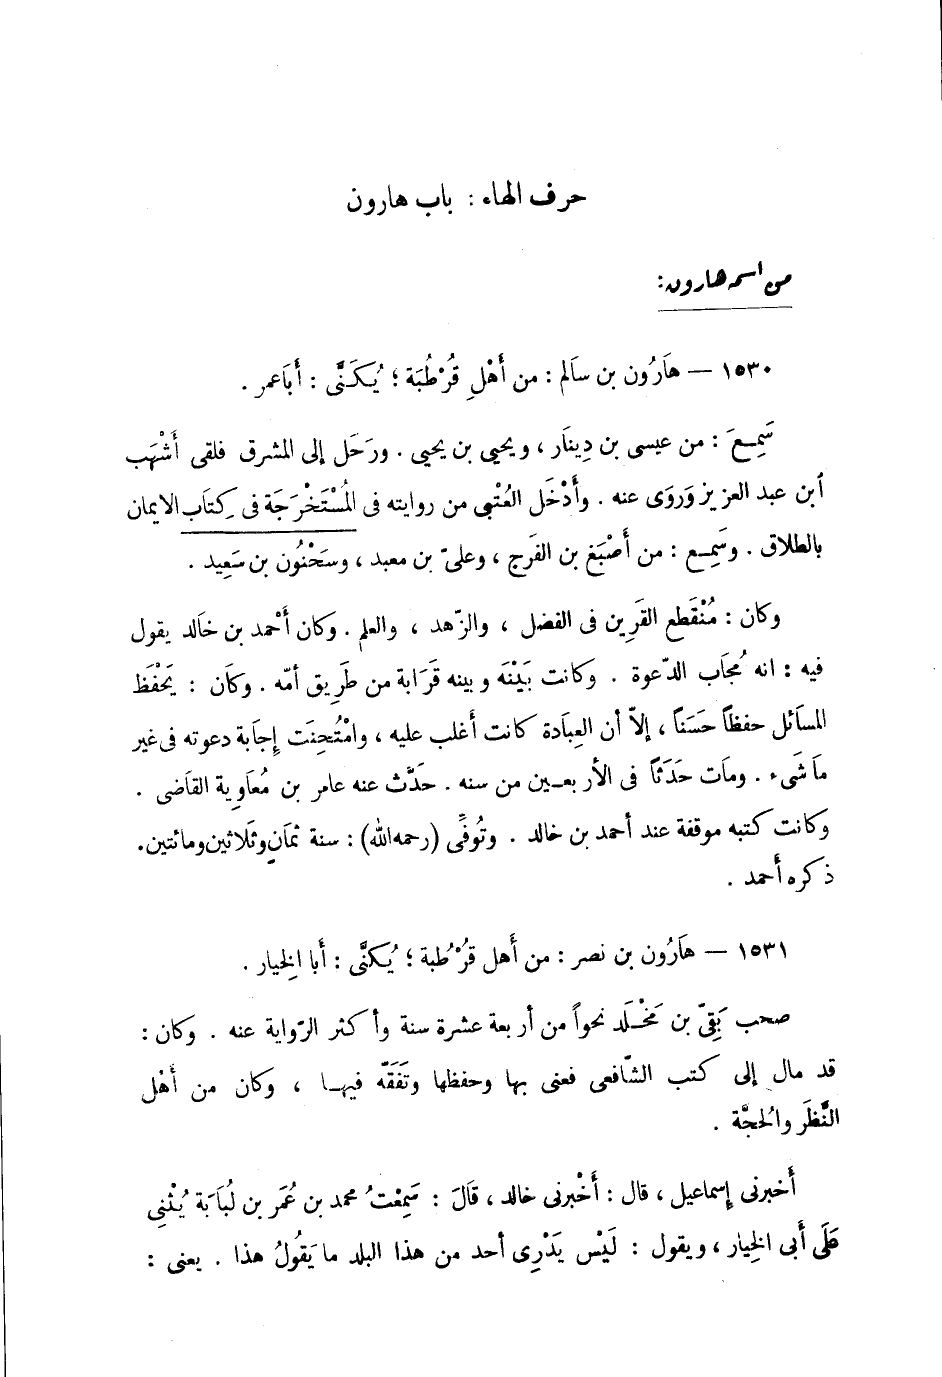 حرف الهاء : باب هارون
من اسمه هارون:
١٥٣٠ — هَارُون بن سَالم : من أَهْلِ قُرْطُبَة ؛ يُكَنَّى : أَبَاعمر .
سَمِعَ : من عيسى بن دِينَار ، ويحيى بن يحيى . ورَحَل إلى المشرق فلقى أَشْهَب
ابن عبد العزيز وَروَى عنه . وأَدْخَل العُتْبى من روايته فى المُسْتَخْرَجَة فى كِتَاب الايمان
بالطلاق . وسَمِع : من أَصْبَغ بن الفَرج ، وعلىّ بن معبد ، وسَحْنُون بن سَعِيد .
وكان : مُنْقَطع القَرِين فى الفضل ، والزّهد ، والعلم . وكان أَحْمد بن خَالد يقول
فيه : انه مُجَاب الدّعوة . وكانت بَيْنَه وبينه قَرَابة من طَرِيق أمّه . وكَان : يَحْفَظ
المسَائل حفظاً حَسَناً ، إلاّ أن العِبَادة كانت أغلب عليه ، وامْتُحِنَت إِجَابة دعوته فى غير
مَا شَىء . ومَات حَدَثاً فى الأربعين من سنه . حَدَّث عنه عامر بن مُعَاوِية القَاضى .
وكانت كتبه موقفة عند أحمد بن خالد . وتُوفِّى (رحمه الله) : سنة ثَمَانٍ وثَلاثين ومائتين.
ذكره أَحمد .
١٥٣١ — هَارُون بن نصر : من أَهل قُرْطُبة ؛ يُكَنَّى : أَبا الخِيار .
صحب بَقِىّ بن مَخْلَد نحواً من أربعة عشرة سنة وأكثر الرّواية عنه . وكان :
قد مال إلى كتب الشّافعى فعنى بها وحفظها وتَفَقَّه فيها ، وكان من أَهْل
النَّظَر والحُجَّة .
أَخبرنى إِسماعيل ، قال : أَخْبرنى خالد ، قَالَ : سَمِعْتُ محمد بن عُمَر بن لُبَابَة يُثْنِى
عَلَى أَبى الخِيار ، ويقول : لَيْس يَدْرِى أحد من هذا البلد ما يَقُولُ هذا . يعنى :